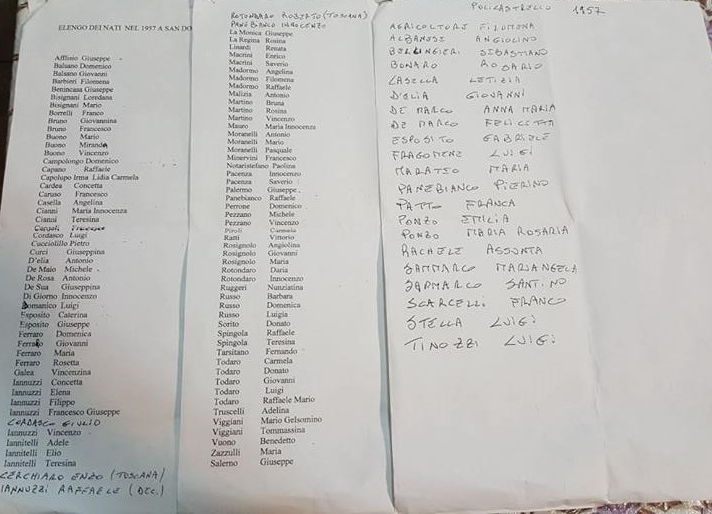 ELENGO DEI NATI NEL 1957 A SAN DO
Afflisio Giuseppe
Balsano Domenico
Balsano Giovanni
Barbieri Filomena
Benincasa Giuseppe
Bisignani Loredana
Bisignani Mario
Borrelli Franco
Bruno Giovannina
Bruno Francesco
Buono Mario
Buono Miranda
Buono Vincenzo
Campolongo Domenico
Capano Raffaele
Capolupo Irma Lidia Carmela
Cardea Concetta
Caruso Francesco
Casella Angelina
Cianni Maria Innocenza
Cianni Teresina
Cordasco Luigi
Cucciolillo Pietro
Curci Giuseppina
D'elia Antonio
De Maio Michele
De Rosa Antonio
De Sua Giuseppina
Di Giorno Innocenzo
Domanico Luigi
Esposito Caterina
Esposito Giuseppe
Ferraro Domenica
Ferraro Giovanni
Ferraro Maria
Ferraro Rosetta
Galea Vincenzina
Iannuzzi Concetta
Iannuzzi Elena
Iannuzzi Filippo
Iannuzzi Francesco Giuseppe
CORDASCO GIULIO
Iannuzzi Vincenzo
Iannitelli Adele
Iannitelli Elio
Iannitelli Teresina
CERCHIARO ENZO (TOSCANA)
IANNUZZI RAFFAELE (DEC.)
ROTONDARO ROBERTO (TOSCANA)
PANEBIANCO INNOCENZO
La Monica Giuseppe
La Regina Rosina
Linardi Renata
Macrini Enrico
Macrini Saverio
Madormo Angelina
Madormo Filomena
Madormo Raffaele
Malizia Antonio
Martino Bruna
Martino Rosina
Martino Vincenzo
Mauro Maria Innocenza
Moranelli Antonio
Moranelli Mario
Moranelli Pasquale
Minervini Francesco
Notaristefano Paolina
Pacenza Innocenzo
Pacenza Saverio
Palermo Giuseppe
Panebianco Raffaele
Perrone Domenico
Pezzano Michele
Pezzano Vincenzo
Piroli Carmela
Ratti Vittorio
Rosignolo Angiolina
Rosignolo Giovanni
Rosignolo Maria
Rotondaro Daria
Rotondaro Innocenzo
Ruggeri Nunziatina
Russo Barbara
Russo Domenica
Russo Luigia
Sorito Donato
Spingola Raffaele
Spingola Teresina
Tarsitano Fernando
Todaro Carmela
Todaro Donato
Todaro Giovanni
Todaro Luigi
Todaro Raffaele Mario
Truscelli Adelina
Viggiani Mario Gelsomino
Viggiani Tommassina
Vuono Benedetto
Zazzulli Maria
Salerno Giuseppe
POLICASTRELLO 1957
AGRICOLTORE FILOMENA
ALBANESE ANGIOLINO
BELLINGIERI SEBASTIANO
BONARO ROSARIO
CASELLA LETIZIA
D'ELIA GIOVANNI
DE MARCO ANNA MARIA
DE MARCO FELICETTA
ESPOSITO GABRIELE
FRAGOMENE LUIGI
MARATEO MARIA
PANEBIANCO PIERINO
PATTO FRANCA
PONZO EMILIA
PONZO MARIA ROSARIA
RACHELE ASSUNTA
SAMMARCO MARIANGELA
SAMMARCO SANTINO
SCARCELLI FRANCO
STELLA LUIGI
TINOZZI LUIGI